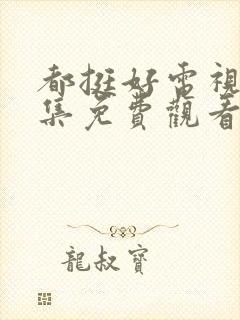 都挺好電視
集免費觀看
龍叔寶